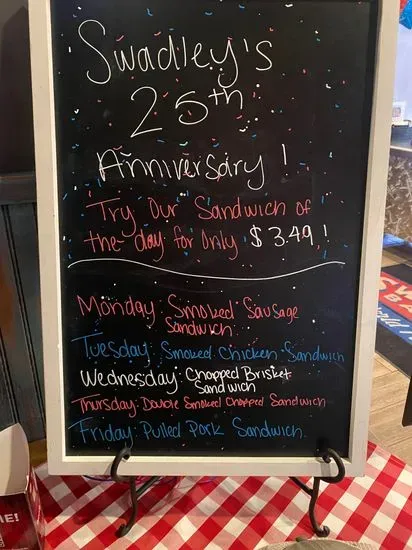 Swadley's
25th
Anniversary!
Try Our Sandwich of
the day for Only $3.49!
Monday: Smoked Sausage
Sandwich
Tuesday: Smoked Chicken Sandwich
Wednesday: Chopped Brisket
Sandwich
Thursday: Double Smoked Chopped Sandwich
Friday: Pulled Pork Sandwich
ME!